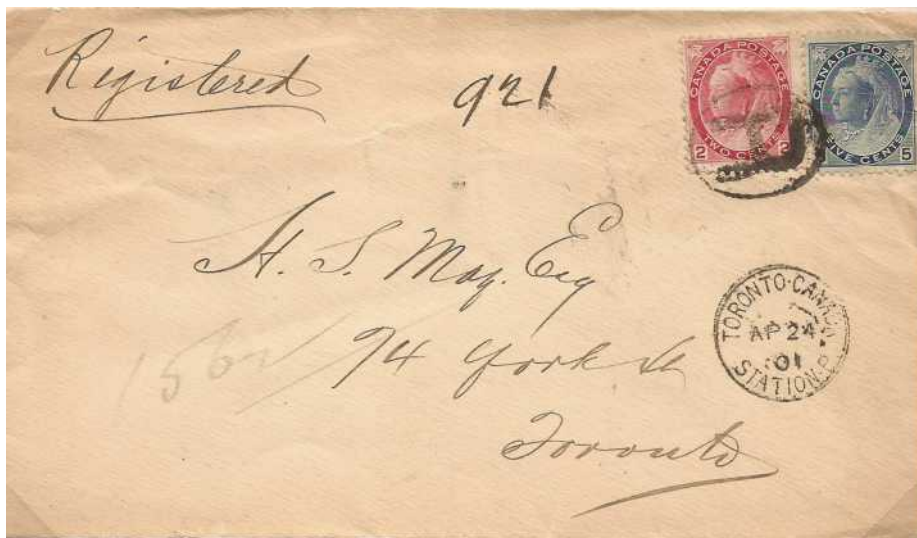 Registered
921
CANADA POSTAGE
2 TWO CENTS 2
CANADA POSTAGE
FIVE CENTS 5
H. S. May. Esq
94 York St
Toronto
TORONTO·CANADA
AP 24
01
STATION·